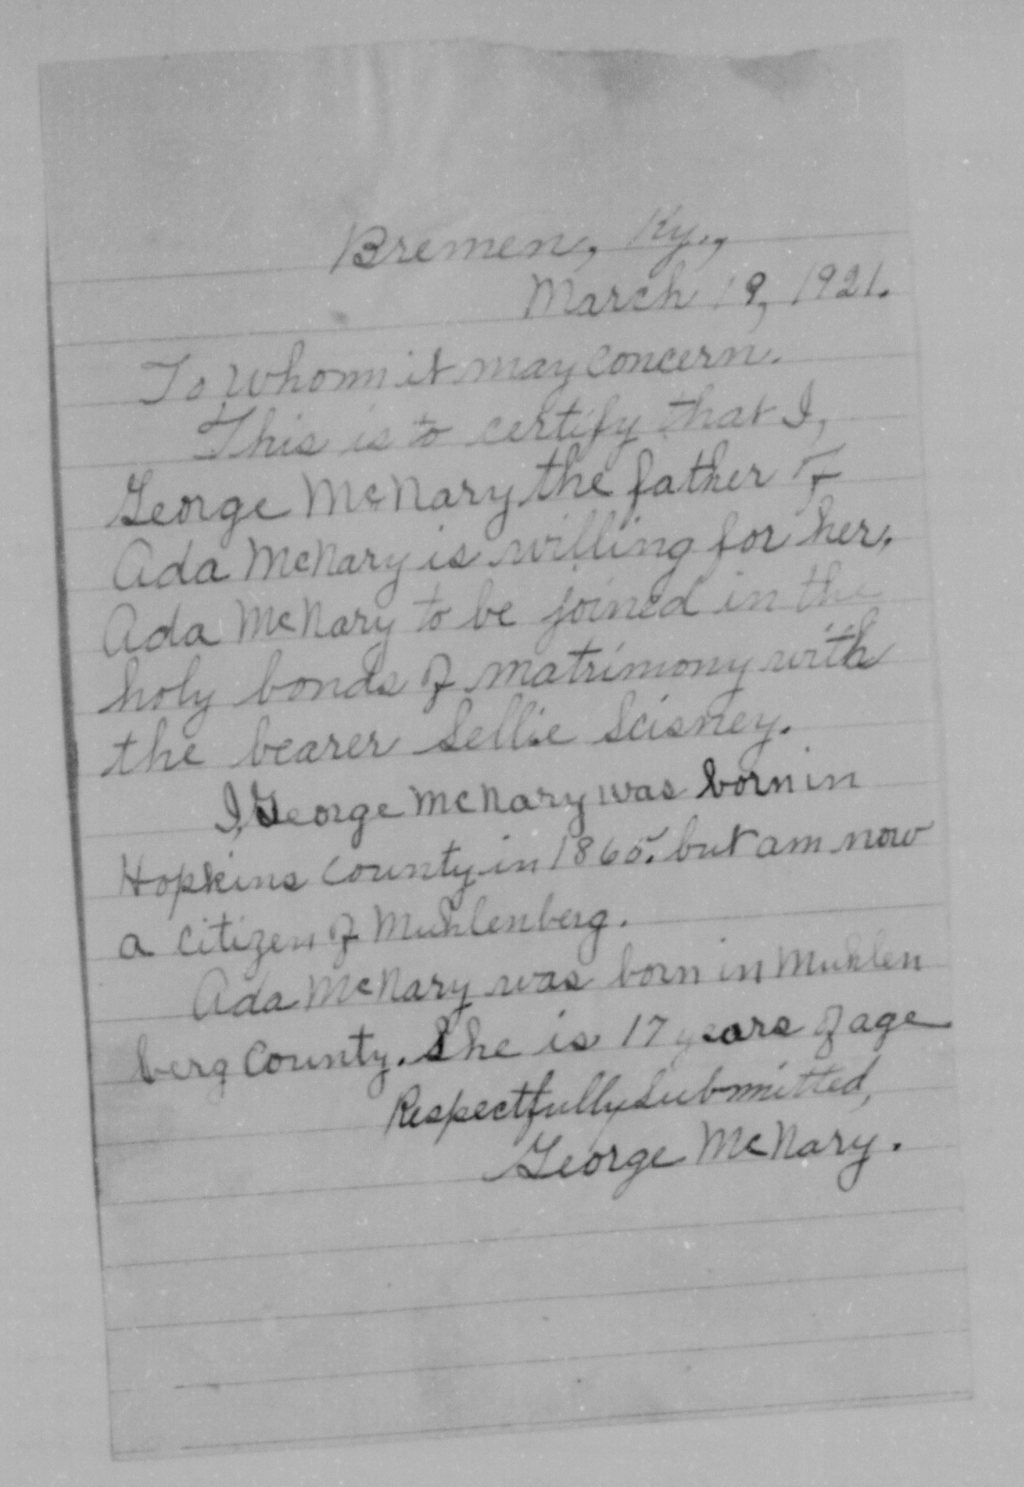 Bremen, Ky.,
March 19, 1921.
To Whom it may Concern.
This is to certify that I,
George McNary the father of
Ada McNary is willing for her,
Ada McNary to be joined in the
holy bonds of matrimony with
the bearer Sellie Scisney.
I, George McNary was born in
Hopkins County in 1865. but am now
a citizen of Muhlenberg.
Ada McNary was born in Muhlen
berg County. She is 17 years of age
Respectfully Submitted,
George McNary.